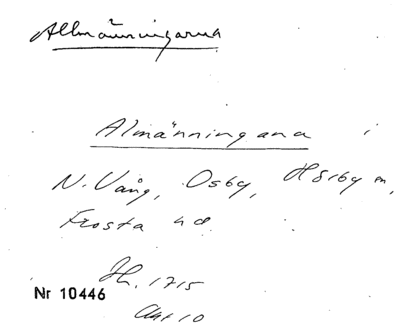 Allmänningarna
Almänningana i
N. Vång, Osby, Hörby m,
Frosta hd.
Jh. 1715
Nr 10446
Akt 10